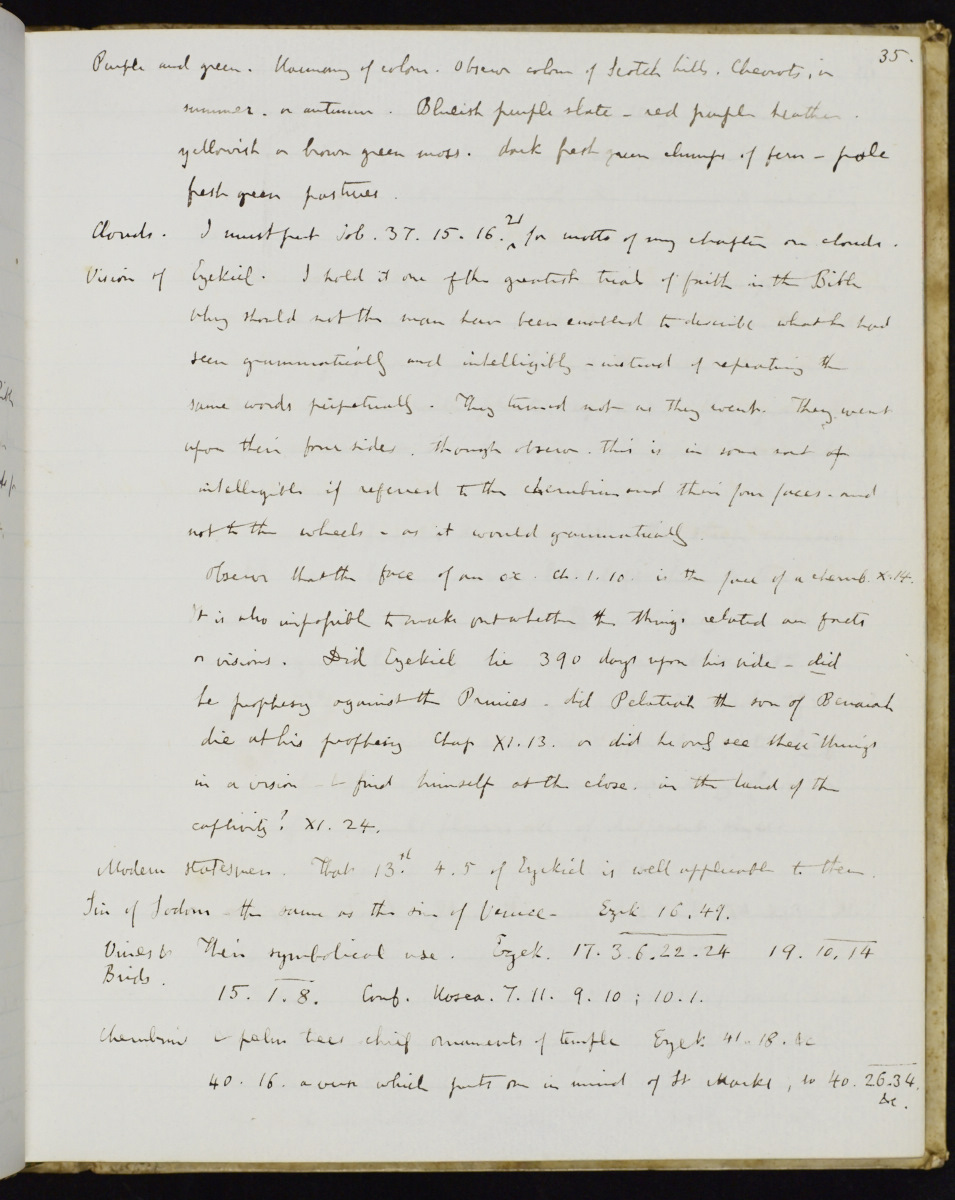 35.
Purple and green. Harmony of colour. Observe colour of Scotch hills. Cheviots, in
summer. or autumn. Blueish purple slate - red purple heather.
yellowish or brown green moss. dark fresh green clumps of fern - pale
fresh green pastures.
Clouds. I must put Job. 37. 15. 16. 21 for motto of my chapter on clouds.
Vision of Ezekiel. I hold it one of the greatest trials of faith in the Bible
Why should not the man have been enabled to describe what he had
seen grammatically and intelligibly - instead of repeating the
same words perpetually. They turned not as they went. They went
upon their four sides. though observe. this is in some sort of
intelligible if referred to the cherubim and their four faces. and
not to the wheels - as it would grammatically.
Observe that the face of an ox. ch. 1. 10. is the face of a cherub. X. 14.
It is also impossible to make out whether the things related are facts
or visions. Did Ezekiel lie 390 days upon his side - did
he prophesy against the Princes. did Pelatiah the son of Benaiah
die at his prophesy Chap XI. 13. or did he only see these things
in a vision & find himself at the close. in the land of the
captivity? XI. 24.
Modern statesmen. That 13. 4. 5 of Ezekiel is well applicable to them.
Sin of Sodom - the same as the sin of Venice - Ezek 16. 49.
Vines & Their symbolical use. Ezek. 17. 3. 6. 22. 24 19. 10. 14
Birds. 15. 1. 8. Conf. Hosea. 7. 11. 9. 10; 10. 1.
Cherubim & palm trees chief ornaments of temple Ezek 41. 18. &c
40. 16. a verse which puts one in mind of St Marks, so 40. 26. 34.
&c.